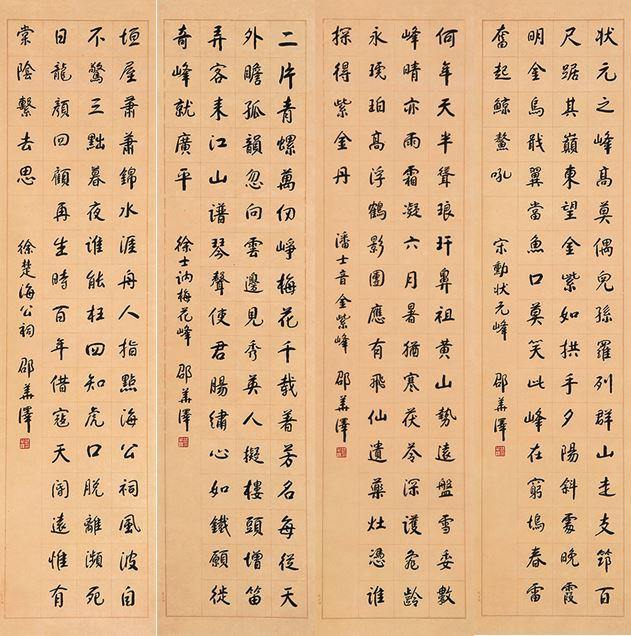 状元之峰高莫偶兒孫羅列群山走支筇百
尺踞其巔東望金紫如拱手夕陽斜處晚霞
明金烏戢翼當魚口莫笑此峰在窮塢春雷
奮起鯨鰲吼
宋勳状元峰 邵華澤
何年天半聳琅玕鼻祖黄山勢遠盤雪委數
峰晴亦雨霜凝六月暑猶寒茯苓深護龜齡
永琥珀高浮鶴影團應有飛仙遺藥灶憑誰
探得紫金丹
潘士音金紫峰 邵華澤
二片青螺萬仞崢梅花千載著芳名每從天
外瞻孤韻忽向雲邊見秀英人擬樓頭增笛
弄客来江山譜琴聲使君腸繡心如鐵願從
奇峰就廣平
徐士讷梅花峰 邵華澤
垣屋蕭蕭錦水涯舟人指點海公祠風波自
不驚三黜暮夜誰能枉四知虎口脱離瀕死
日龍顔回顧再生時百年借寇天閽遠惟有
棠陰繫去思
徐楚海公祠 邵華澤